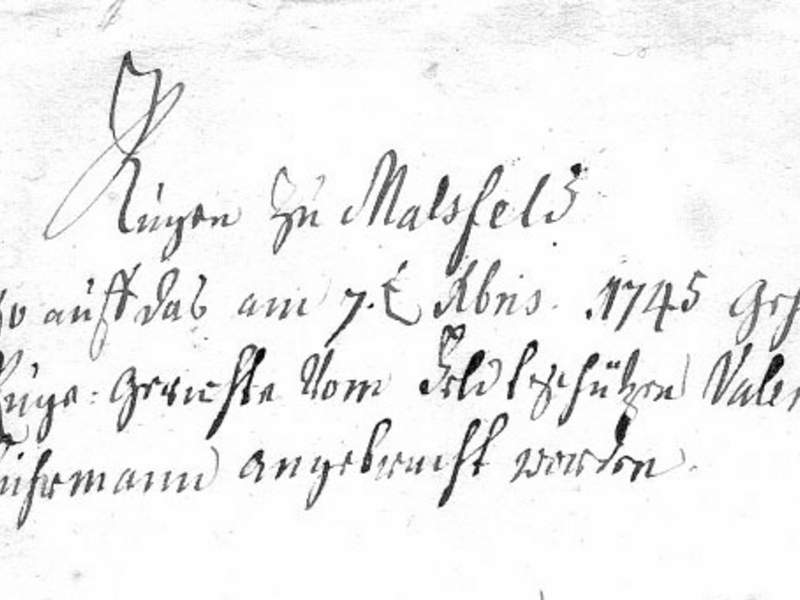 Rügen zu Malsfeld
so auff das am 7.t Xbris. 1745 geh
Rüge: Gerichte Vom Feldtschützen Valen
Fuhrmann angebracht worden.